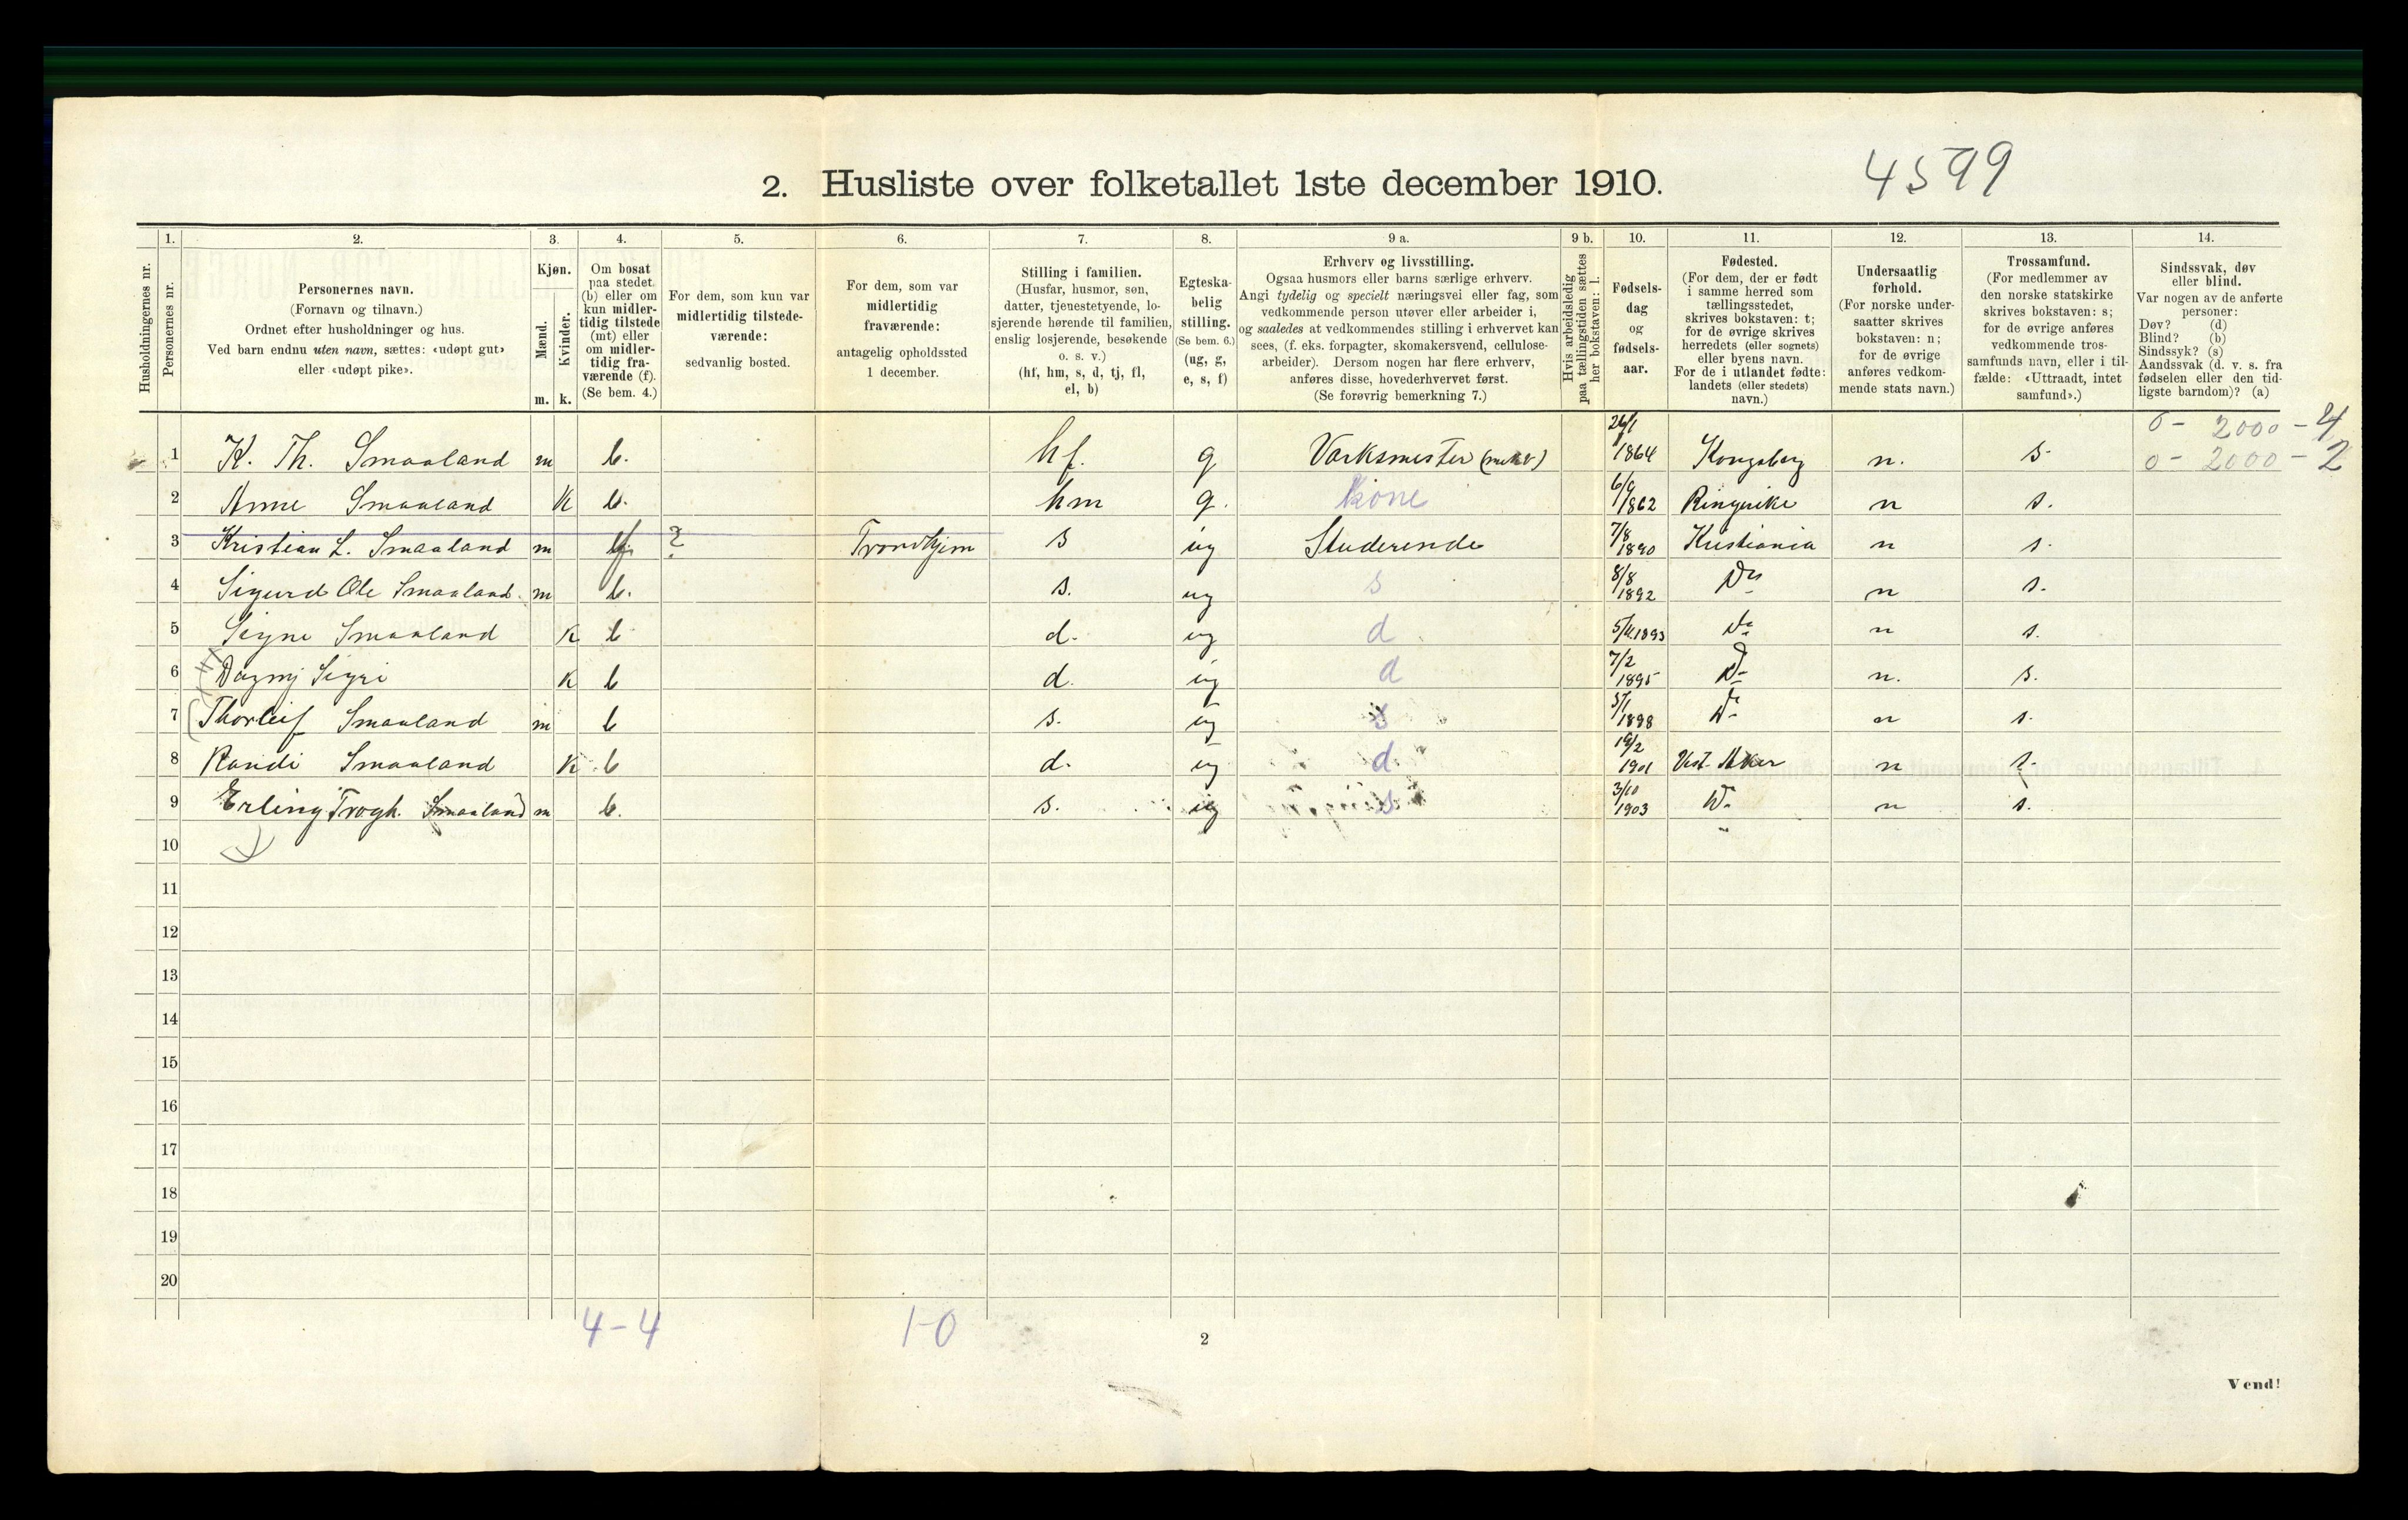 4599
2. Husliste over folketallet 1ste december 1910.
Husholdningernes nr.
1. Personernes nr.
2. Personernes navn. (Fornavn og tilnavn.) Ordnet efter husholdninger og hus. Ved barn endnu uten navn, sættes: «udøpt gut» eller «udøpt pike».
3. Kjøn. Mænd. m. Kvinder. k.
4. Om bosat paa stedet (b) eller om kun midlertidig tilstede (mt) eller om midlertidig fraværende (f). (Se bem. 4.)
5. For dem, som kun var midlertidig tilstedeværende: sedvanlig bosted.
6. For dem, som var midlertidig fraværende: antagelig opholdssted 1 december.
7. Stilling i familien. (Husfar, husmor, søn, datter, tjenestetyende, losjerende hørende til familien, enslig losjerende, besøkende o. s. v.) (hf, hm, s, d, tj, fl, el, b)
8. Egteskabelig stilling. (Se bem. 6.) (ug, g, e, s, f)
9 a. Erhverv og livsstilling. Ogsaa husmors eller barns særlige erhverv. Angi tydelig og specielt næringsvei eller fag, som vedkommende person utøver eller arbeider i, og saaledes at vedkommendes stilling i erhvervet kan sees, (f. eks. forpagter, skomakersvend, cellulose-arbeider). Dersom nogen har flere erhverv, anføres disse, hovederhvervet først. (Se forøvrig bemerkning 7.)
9 b. Hvis arbeidsledig paa tællingstiden sættes her bokstaven: l.
10. Fødselsdag og fødselsaar.
11. Fødested. (For dem, der er født i samme herred som tællingsstedet, skrives bokstaven: t; for de øvrige skrives herredets (eller sognets) eller byens navn. For de i utlandet fødte: landets (eller stedets) navn.)
12. Undersaatlig forhold. (For norske undersaatter skrives bokstaven: n; for de øvrige anføres vedkommende stats navn.)
13. Trossamfund. (For medlemmer av den norske statskirke skrives bokstaven: s; for de øvrige anføres vedkommende trossamfunds navn, eller i tilfælde: «Uttraadt, intet samfund».)
14. Sindssvak, døv eller blind. Var nogen av de anførte personer: Døv? (d) Blind? (b) Sindssyk? (s) Aandssvak (d. v. s. fra fødselen eller den tidligste barndom)? (a)
0 - 2000 - 4
1 K. Th. Smaaland m b. hf. g Værksmester 26/1 1864 Kongsberg n. s. 0 - 2000 - 2
2 Anne Smaaland K b. hm g. kone 6/9 1862 Ringerike n s.
3 Kristian L. Smaaland m f ? Trondhjem s ug Studerende 7/8 1890 Kristiania n s.
4 Sigurd Ole Smaaland. m b. s. ug s 8/8 1892 Do n s.
5 Signe Smaaland K b d. ug d 1893 Do n s.
6 Dagny Sigri K b d. ug d 7/2 1895 Do n. s.
7 Thorleif Smaaland m b s. ug s 1898 Do n s.
8 Randi Smaaland K b d. ug d 19/2 1901 Vest. Aker n s.
9 Erling Trogh. Smaaland m b. s. ug s 3/10 1903 Do n s.
10
11
12
13
14
15
16
17
18
19
20
4-4 1-0
2
Vend!